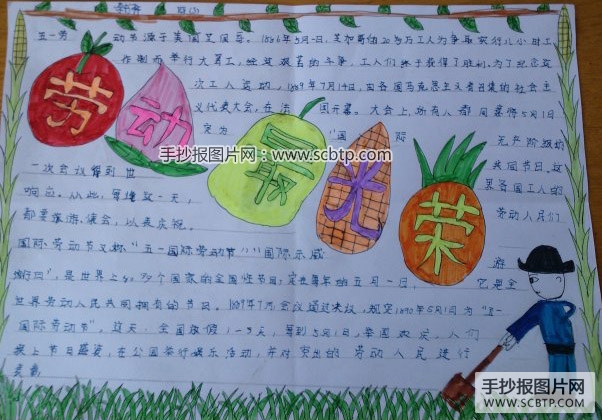 五一劳动节源于美国芝加哥。1886年5月1日,芝加哥的20多万工人为争取实行八小时工
作制而举行大罢工,经过艰苦的斗争,工人们终于获得了胜利。为了纪念这
次工人运动,1889年7月14日,由各国马克思主义者召集的社会主
义代表大会,在法国开幕。大会上,所有人都同意将5月1日
定为国际无产阶级的
劳动最光荣
手抄报图片网:www.scbtp.com
一次会议得到世共同节日,这
界各国工人的
响应。从此,每逢这一天,劳动人民们
都要集会,以表庆祝。
国际劳动节又称“五一国际劳动节”“国际示威游
行日”,是世界上80多个国家的全国性节日,定在每年的五月一日。它是全
世界劳动人民共同拥有的节日。1889年7月会议通过决议,规定1890年5月1日为“五一
国际劳动节”。这天,全国放假1-3天,每到5月1日,举国欢庆,人们
换上节日盛装,在公园举行娱乐活动,并对突出的劳动人民进行
表彰
手抄报图片网
WWW.SCBTP.COM